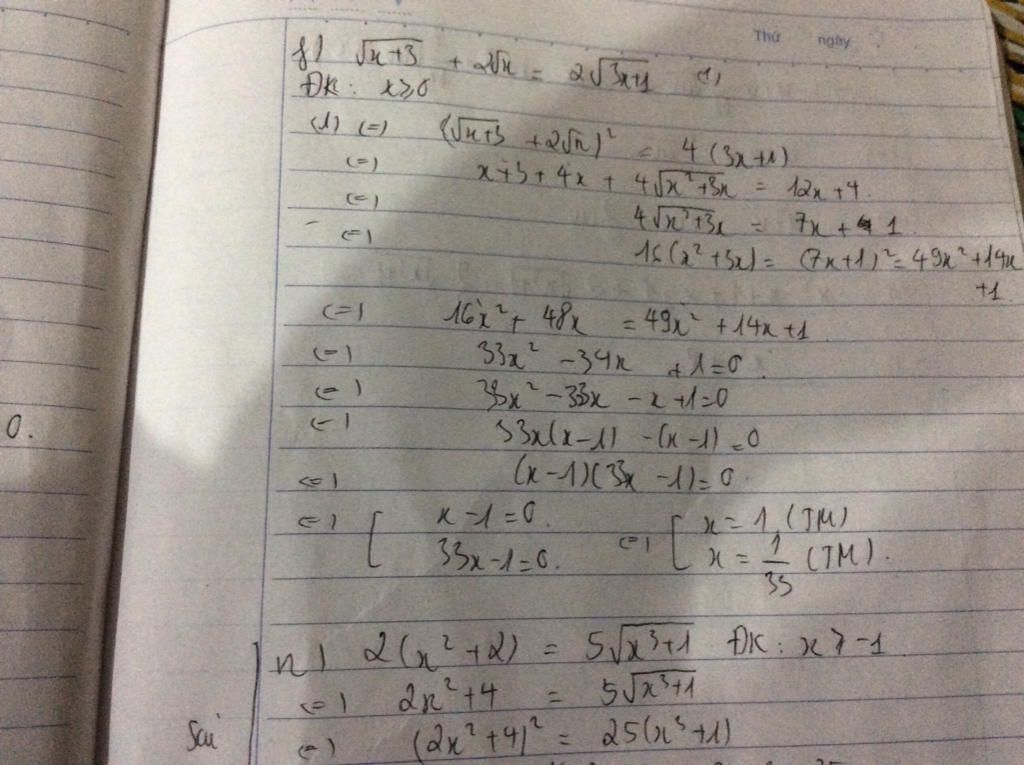 Thứ ngày
f) √(x+3) + 2√x = 2√(3x+1) (1)
ĐK: x ≥ 0
(1) (=) (√(x+3) + 2√x)² = 4(3x+1)
(=) x+3+4x + 4√(x²+3x) = 12x+4.
(=) 4√(x²+3x) = 7x + 1
(=) 16(x²+3x) = (7x+1)² = 49x²+14x
+1
(=) 16x² + 48x = 49x² + 14x + 1
(=) 33x² - 34x + 1 = 0.
(=) 33x² - 33x - x + 1 = 0
(=) 33x(x-1) - (x-1) = 0
(=) (x-1)(33x-1) = 0.
(=) [ x-1=0. (=) [ x = 1 (TM)
33x-1=0. x = 1/33 (TM).
0.
n) 2(x²+2) = 5√(x³+1) ĐK: x ≥ -1
(=) 2x²+4 = 5√(x³+1)
Sai (=) (2x²+4)² = 25(x³+1)